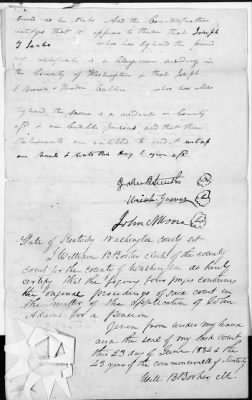 And the Court further
certifies that it appears to them that Joseph
T Jacobs who has signed the
certificate is a Clergyman residing in
the County of Washington & that Joseph
who has also
signed the same is a resident in County
aforesd are credible persons and that their
Statements are entitled to credit witness
our hand & seals this day & year afsd
Uriah Graves
John Moore
State of Kentucky Washington County sct
I William B Booker Clerk of the county
court for the county of Washington do hereby
certify that the foregoing pages contains
the original proceedings of said court in
the matter of the application of John
Adams for a Pension
Given from under my hand
and the seal of my said court
this 23 day of June 1834 & the
43 year of the commonwealth of Kentucky
Will B Booker clk